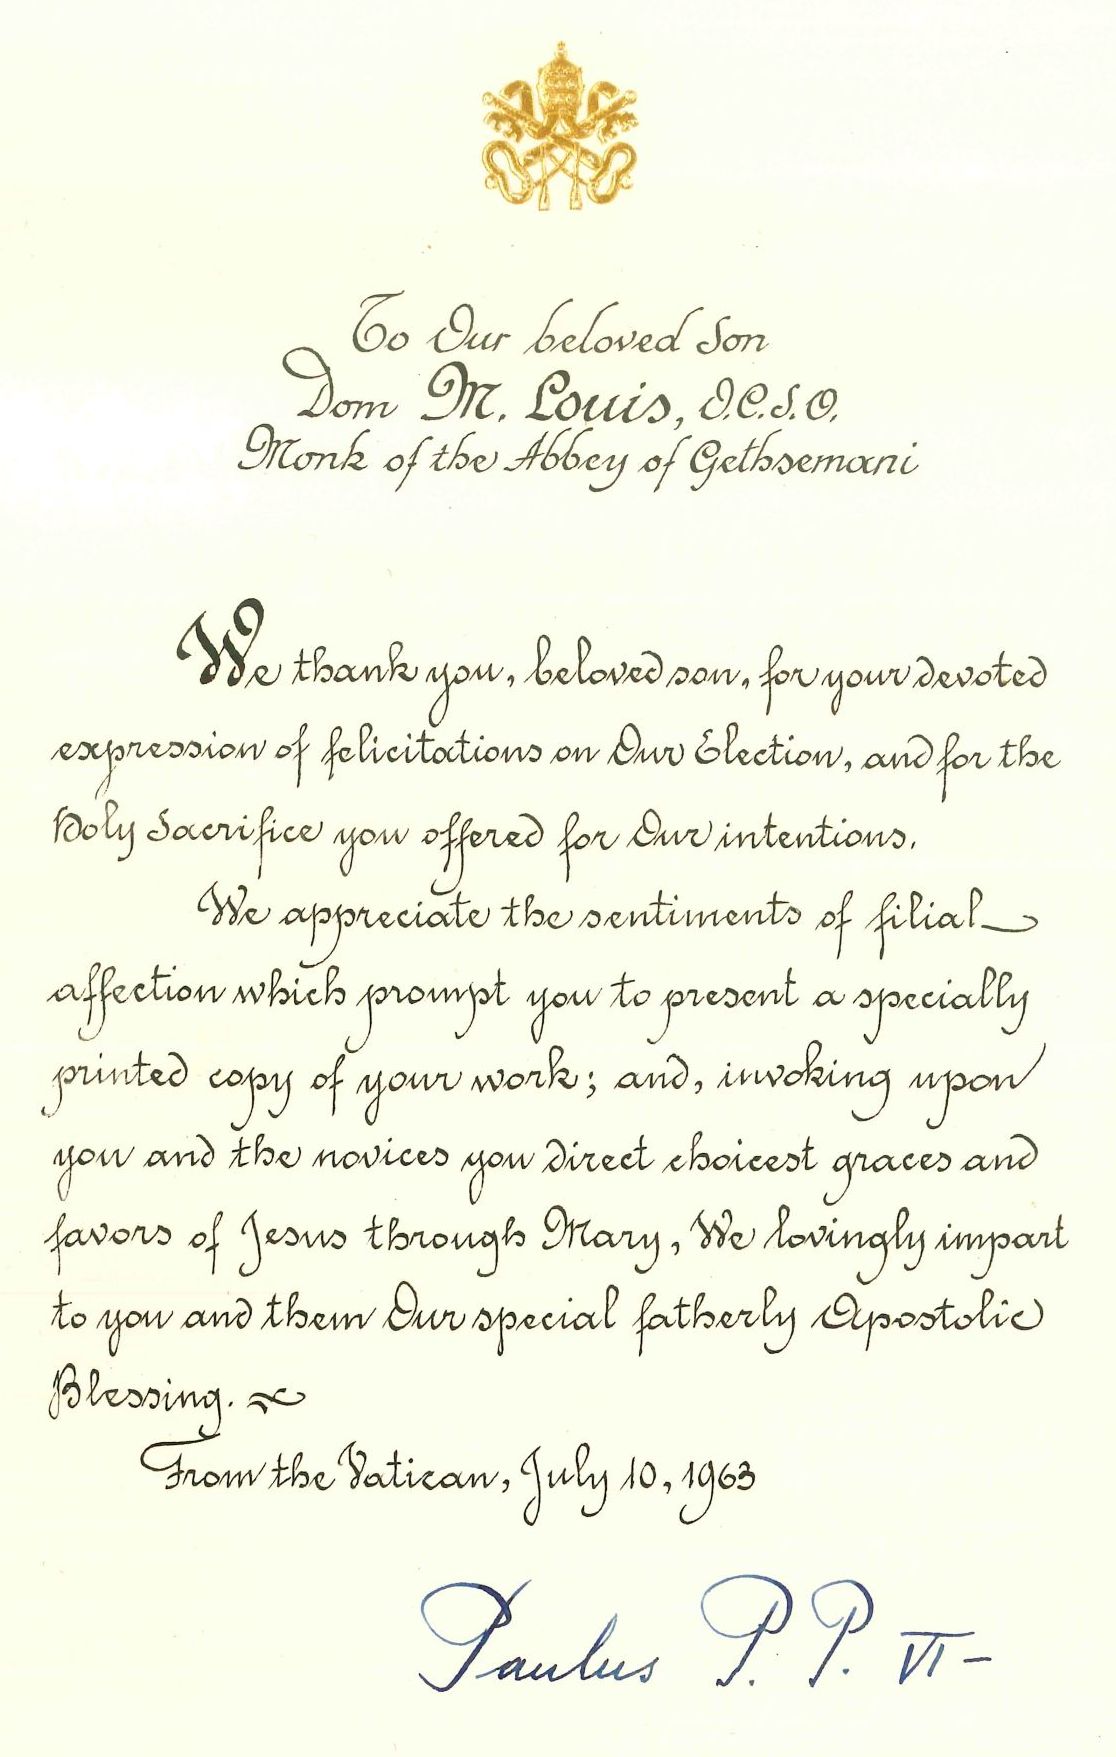 To Our beloved Son
Dom M. Louis, O.C.S.O.
Monk of the Abbey of Gethsemani
We thank you, beloved son, for your devoted
expression of felicitations on Our Election, and for the
Holy Sacrifice you offered for Our intentions.
We appreciate the sentiments of filial
affection which prompt you to present a specially
printed copy of your work; and, invoking upon
you and the novices you direct choicest graces and
favors of Jesus through Mary, We lovingly impart
to you and them Our special fatherly Apostolic
Blessing.
From the Vatican, July 10, 1963
Paulus P. P. VI-